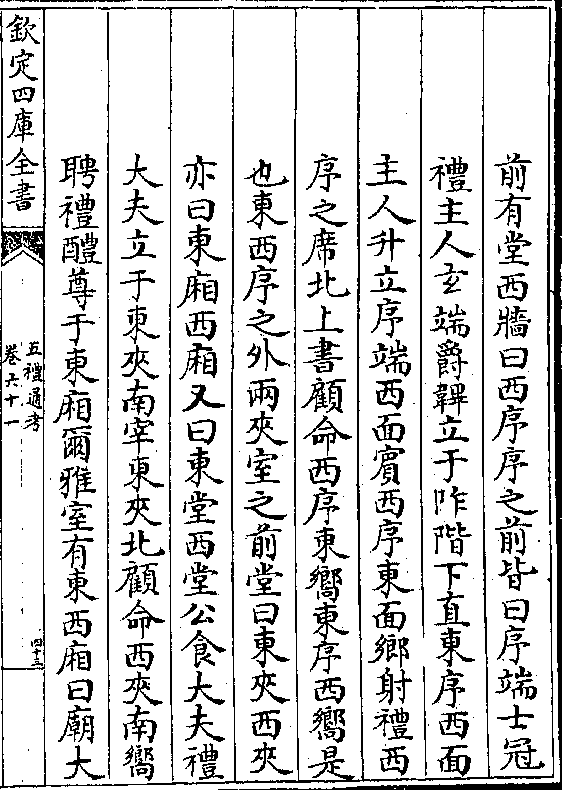 前有堂西牆曰西序序之前皆曰序端士冠
禮主人玄端爵韠立于阼階下直東序西面
主人升立序端西面賓西序東面鄉射禮西
序之席北上書顧命西序東嚮東序西嚮是
也東西序之外兩夾室之前堂曰東夾西夾
亦曰東廂西廂又曰東堂西堂公食大夫禮
大夫立于東夾南宰東夾北顧命西夾南嚮
聘禮醴尊于東廂爾雅室有東西廂曰廟大
欽定四庫全書
五禮通考
卷六十一
四十三